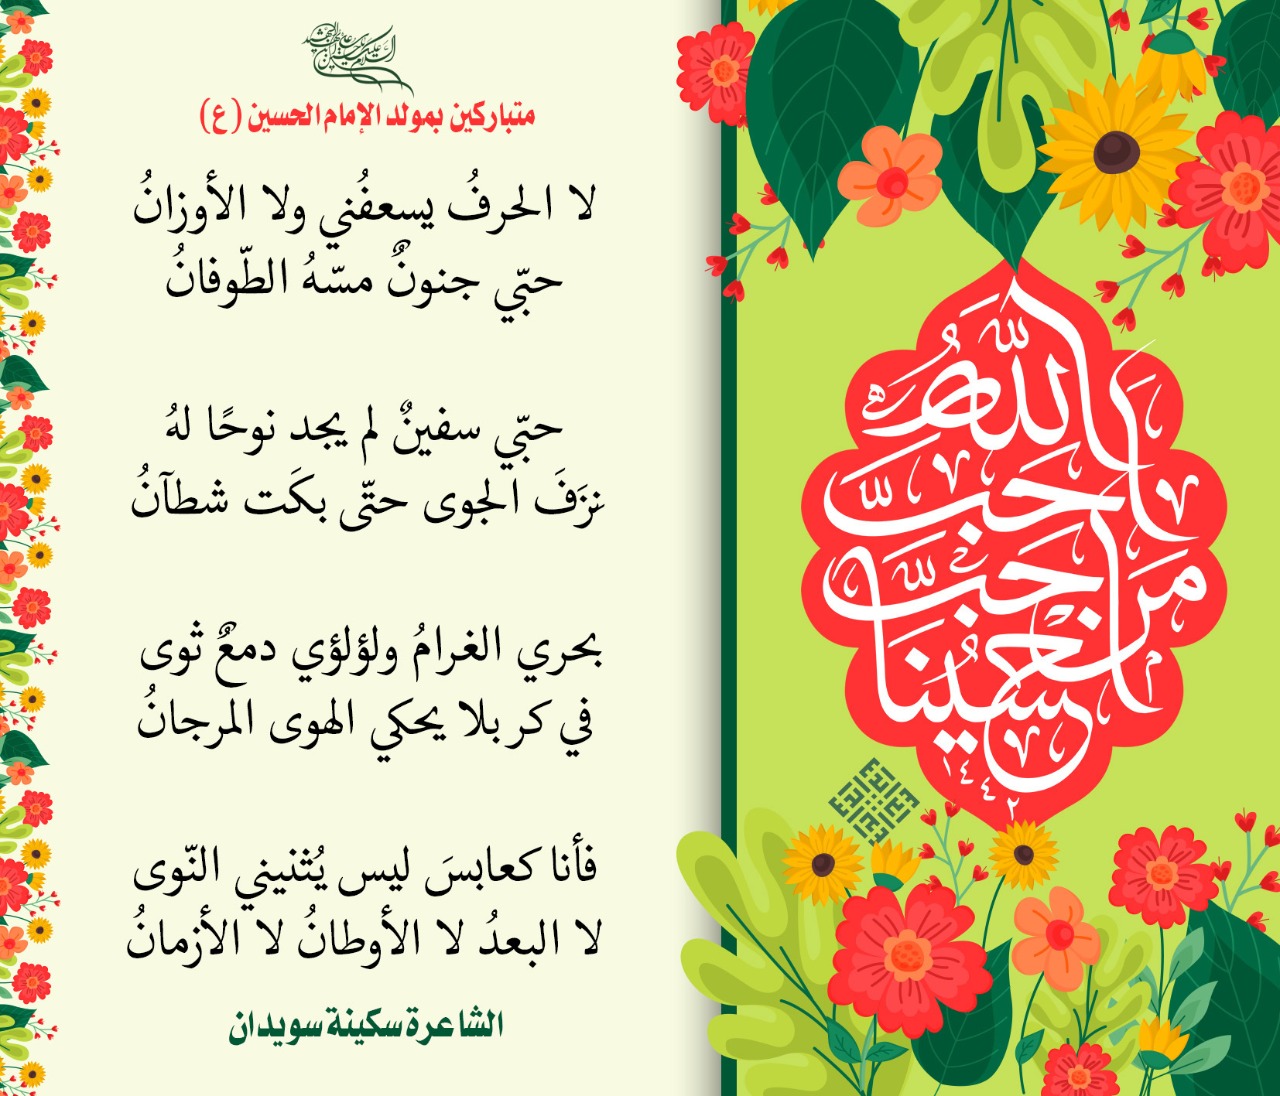 السلام عليك يا أبا عبد الله الحسين الشهيد
متباركين بمولد الإمام الحسين (ع)
لا الحرفُ يسعفُني ولا الأوزانُ
حبّي جنونٌ مسّهُ الطّوفانُ
حبّي سفينٌ لم يجد نوحًا لهُ
نزَفَ الجوى حتّى بكَت شطآنُ
بحري الغرامُ ولؤلؤي دمعٌ ثوى
في كربلا يحكي الهوى المرجانُ
فأنا كعابسَ ليس يُثنيني النّوى
لا البعدُ لا الأوطانُ لا الأزمانُ
الشاعرة سكينة سويدان
أحب الله من أحب حسينا
١٤٤٢